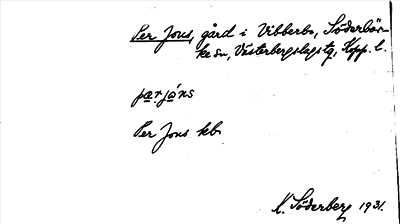 Per Jons, gård i Vibberbo, Söderbär-
ke sn, Västerbergslagstg, Kopp. l.
pæ̱r jọ́ns
Per Jons kb
K. Söderberg 1931.